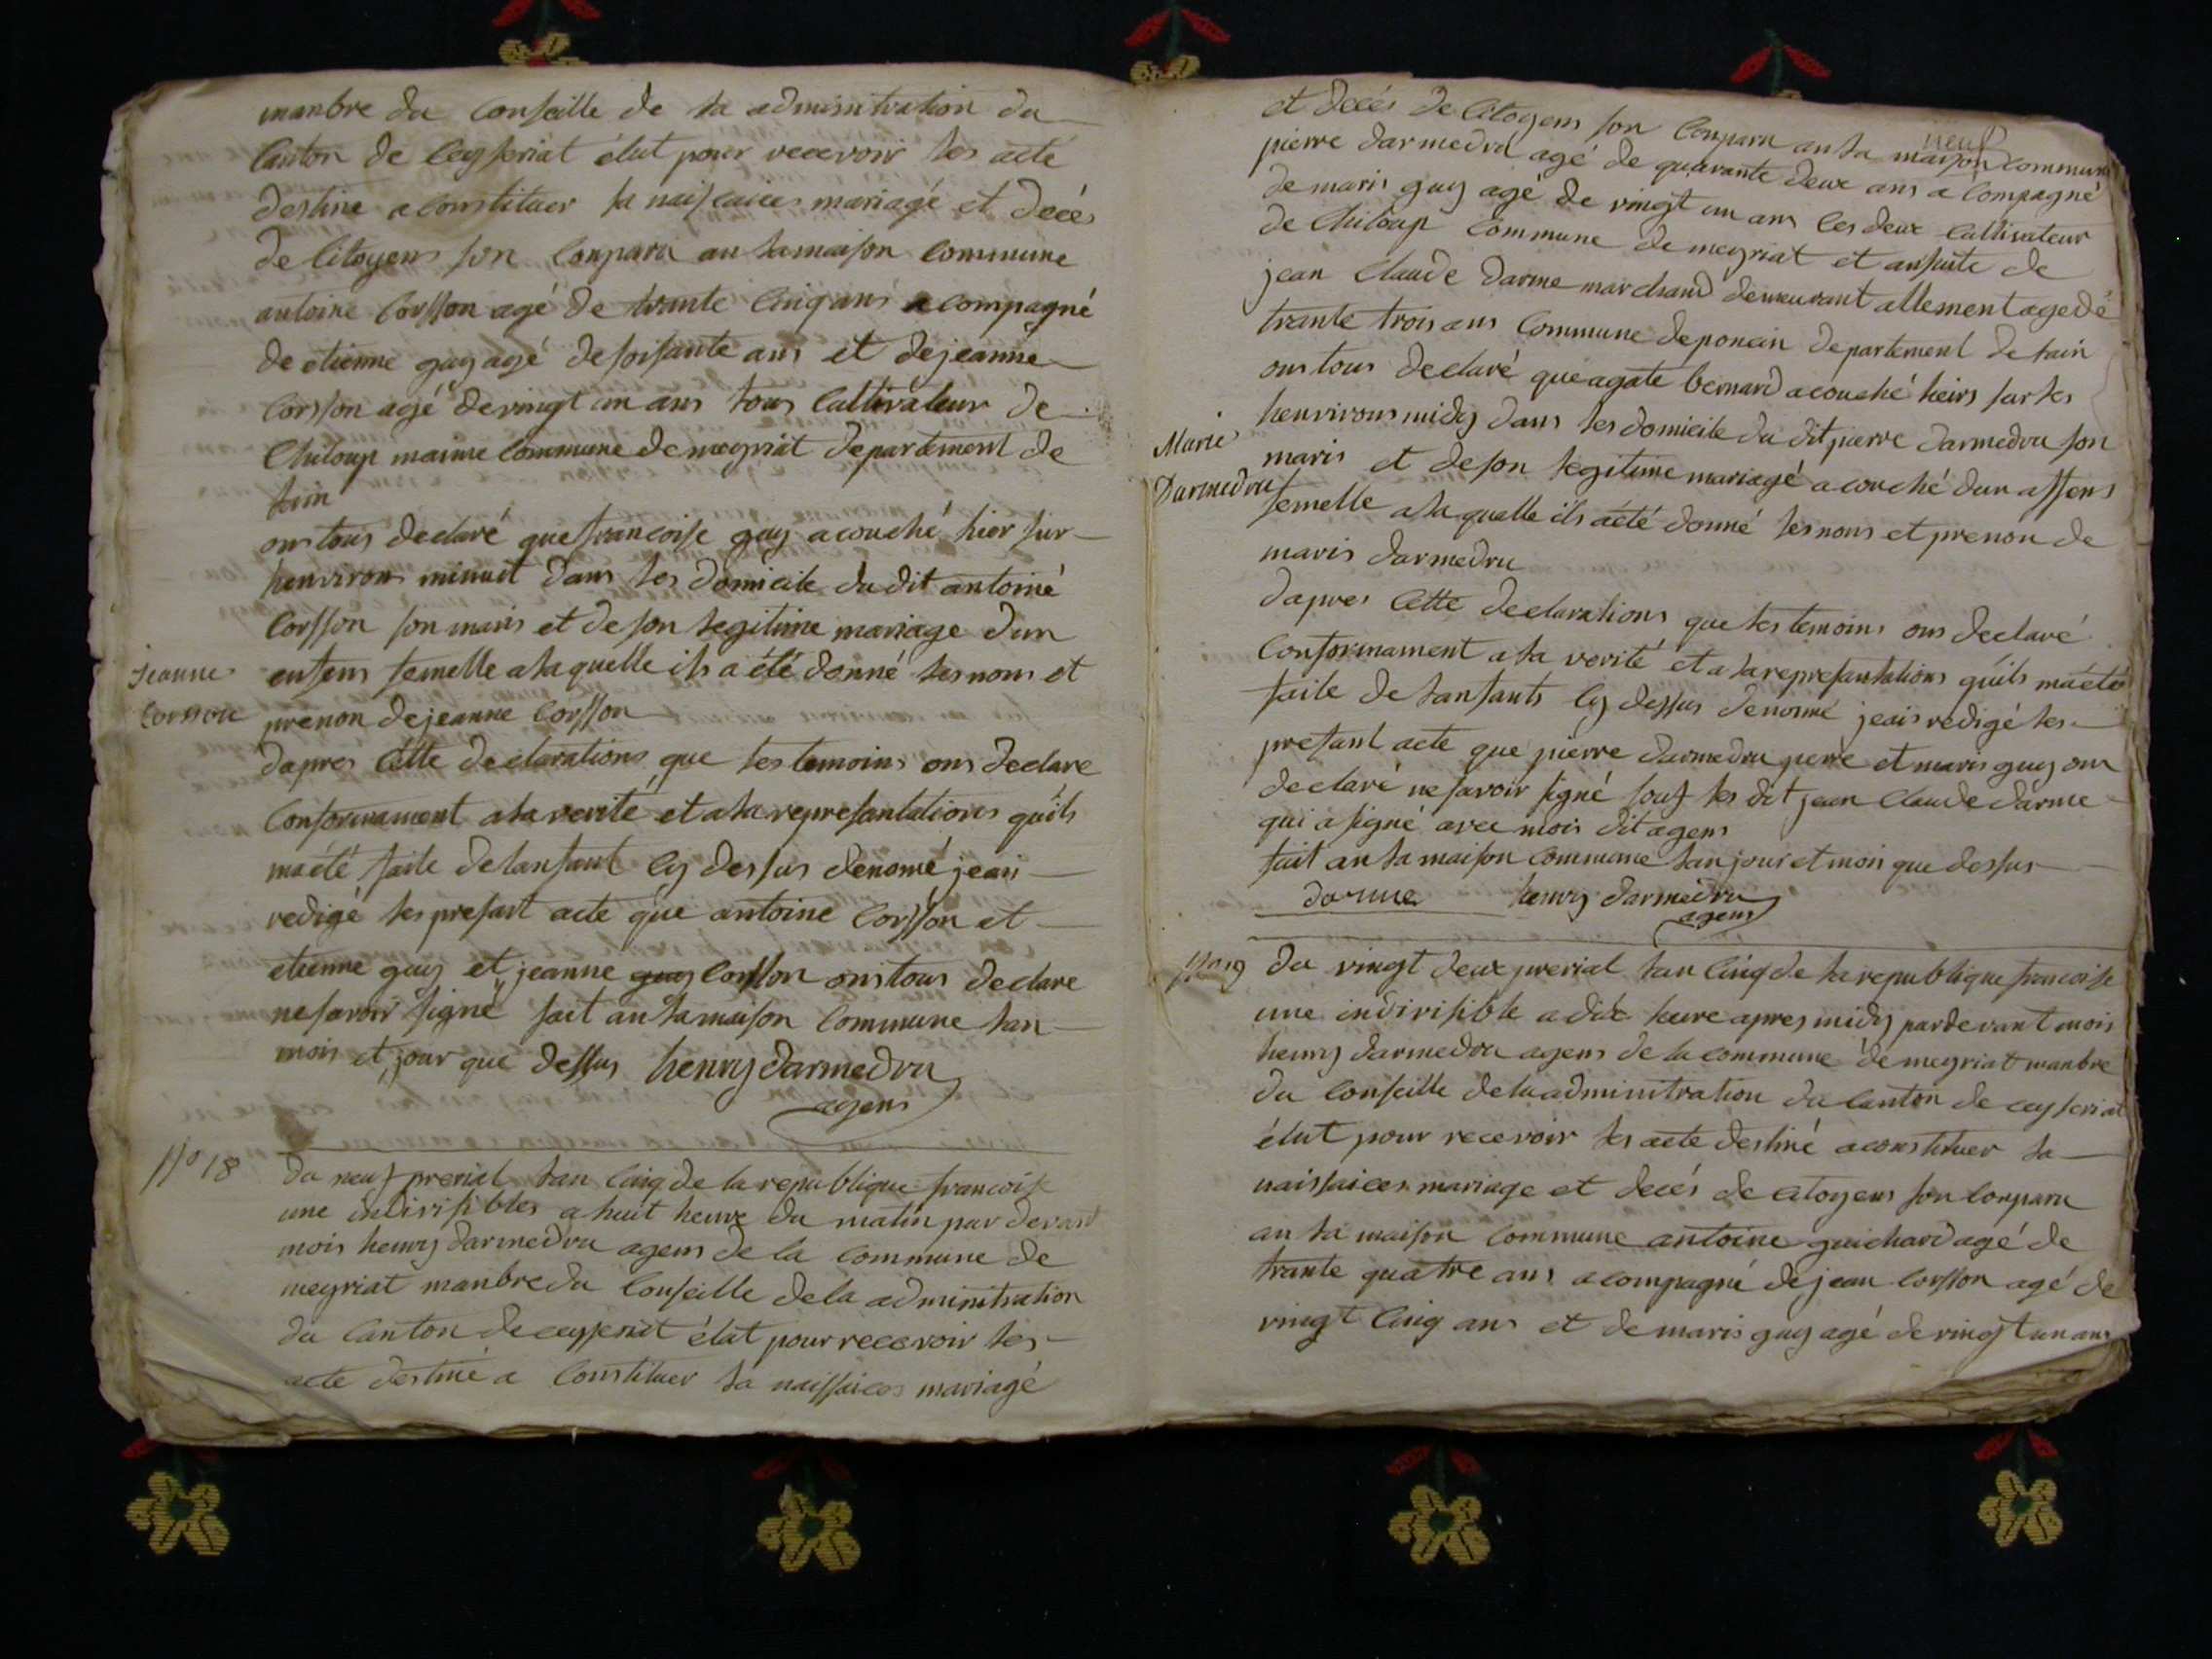 manbre du Conseille de la adminitration du
Canton de Ceyseriat élut pour recevoir les acté
destine a constituer la naissaices mariagé et decés
de Citoyens son Conparu an la maison Commune
antoine Corsson agé de trante Cinq ans acompagné
de etienne guy agé de soisante ans et de jeanne
Corsson agé de vingt un ans tous Cultivateur de
Chiloup maime Commune de meyriat departement de
lain
ons tous declaré que francoise guy a couché hier sur
henvirons minuit dans les domicile du dit antoiné
Corsson son maris et de son legitime mariage dun
enfens femelle a la quelle ils a été donné les nons et
Jeanne
Corsson
prenon de jeanne Corsson
dapres Cette declarations que les temoins ons declare
Conformament a la verité et a la represantations quils
maété faite de lanfant Cy dessus denomé jeai
redigé les presant acte que antoine Corsson et
etienne guy et jeanne guy Corsson ons tous declare
ne savoir signé fait an la maison Commune lan
mois et jour que dessus henry darmedru
agens
No 18
du neuf prerial lan Cinq de la republique francoise
une indivisibles a huit heure du matin par devant
mois henry darmedru agens de la Commune de
meyriat manbre du Conseille de la adminitration
du Canton de ceyseriat élut pour recevoir les
acte destiné a Constituer la naissaices mariagé
neuf
et decés de Citoyens son Conparu an la maison commune
pierre darmedru agé de quarante deux ans a Compagné
de maris guy agé de vingt un ans les deux Cultivateur
de Chiloup Commune de meyriat et ansuite de
jean Claude darme marchand demeurant allement agé de
trante trois ans Commune de poncin departement de lain
ons tous declaré que agate bernard a couché heirs sur les
henvirons midy dans les domicile du dit pierre darmedru son
Marie
Darmedru
maris et de son legitime mariagé a couché dun assens
femelle a la quelle ils aété donné les nons et prenon de
maris darmedru
dapres Cette declarations que les temoins ons declaré
Conformament a la verité et a la represantations quils maété
faite de lanfants Cy dessus denomé jeais redigé les
presant acte que pierre darmedru perre et maris guy ons
declaré ne savoir signé souf les dit jean Claude darme
qui a signé avec mois dit agens
fait an la maison Commune lan jour et mois que dessus
darme henry darmedru
agens
No 19
du vingt deux prerial lan Cinq de la republique francoise
une indivisible a dix heure apres midy par devant mois
henry darmedru agens de la commune de meyriat manbre
du Conseille de la adminitration du Canton de ceyseriat
élut pour recevoir les acte destiné a constituer la
naissaices mariage et decés de Citoyens son Conparu
an la maison Commune antoine guichard agé de
trante quatre ans acompagné de jean Corsson agé de
vingt Cinq ans et de maris guy agé de vingt un ans